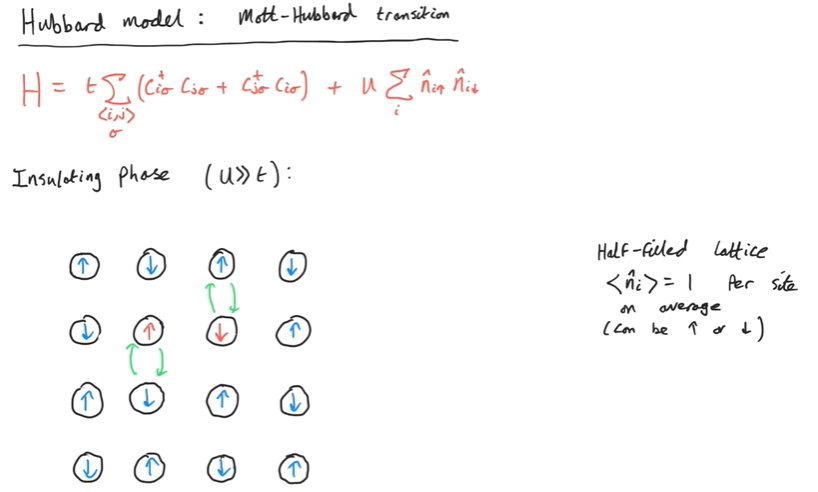 Hubbard model : Mott-Hubbard transition
H = t ∑ (c†iσ cjσ + c†jσ ciσ) + U ∑ n̂i↑ n̂i↓
<i,j>
σ
i
Insulating phase (U≫t):
↑ ↓ ↑ ↓
↓ ↑ ↓ ↑
↑ ↓ ↑ ↓
↓ ↑ ↓ ↑
Half-filled lattice
<n̂i> = 1 per site
on average
(can be ↑ or ↓)